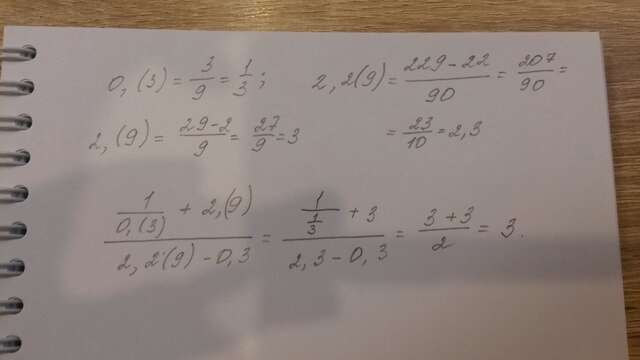 0,(3) = 3/9 = 1/3 ; 2,2(9) = (229-22)/90 = 207/90 =
2,(9) = (29-2)/9 = 27/9 = 3 = 23/10 = 2,3
(1/0,(3) + 2,(9))/(2,2(9) - 0,3) = (1/(1/3) + 3)/(2,3 - 0,3) = (3+3)/2 = 3.